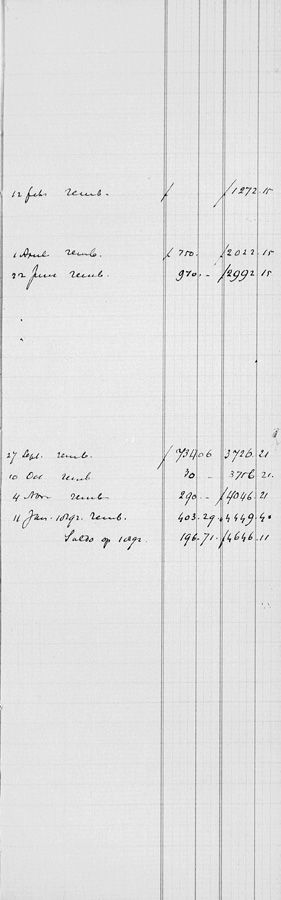 12 febr. remb. ƒ ƒ 1272.15
1 April remb. ƒ 750.- ƒ 2022.15
22 Juni remb. 970.- ƒ 2992.15
27 Sept. remb. ƒ 734.06 3726.21
10 Oct remb. 30 - 3756.21.
4 Nov remb 290 - ƒ 4046.21
11 Jan. remb. 403.29 ƒ 4449.40
Saldo op 196.71. ƒ 4646.11